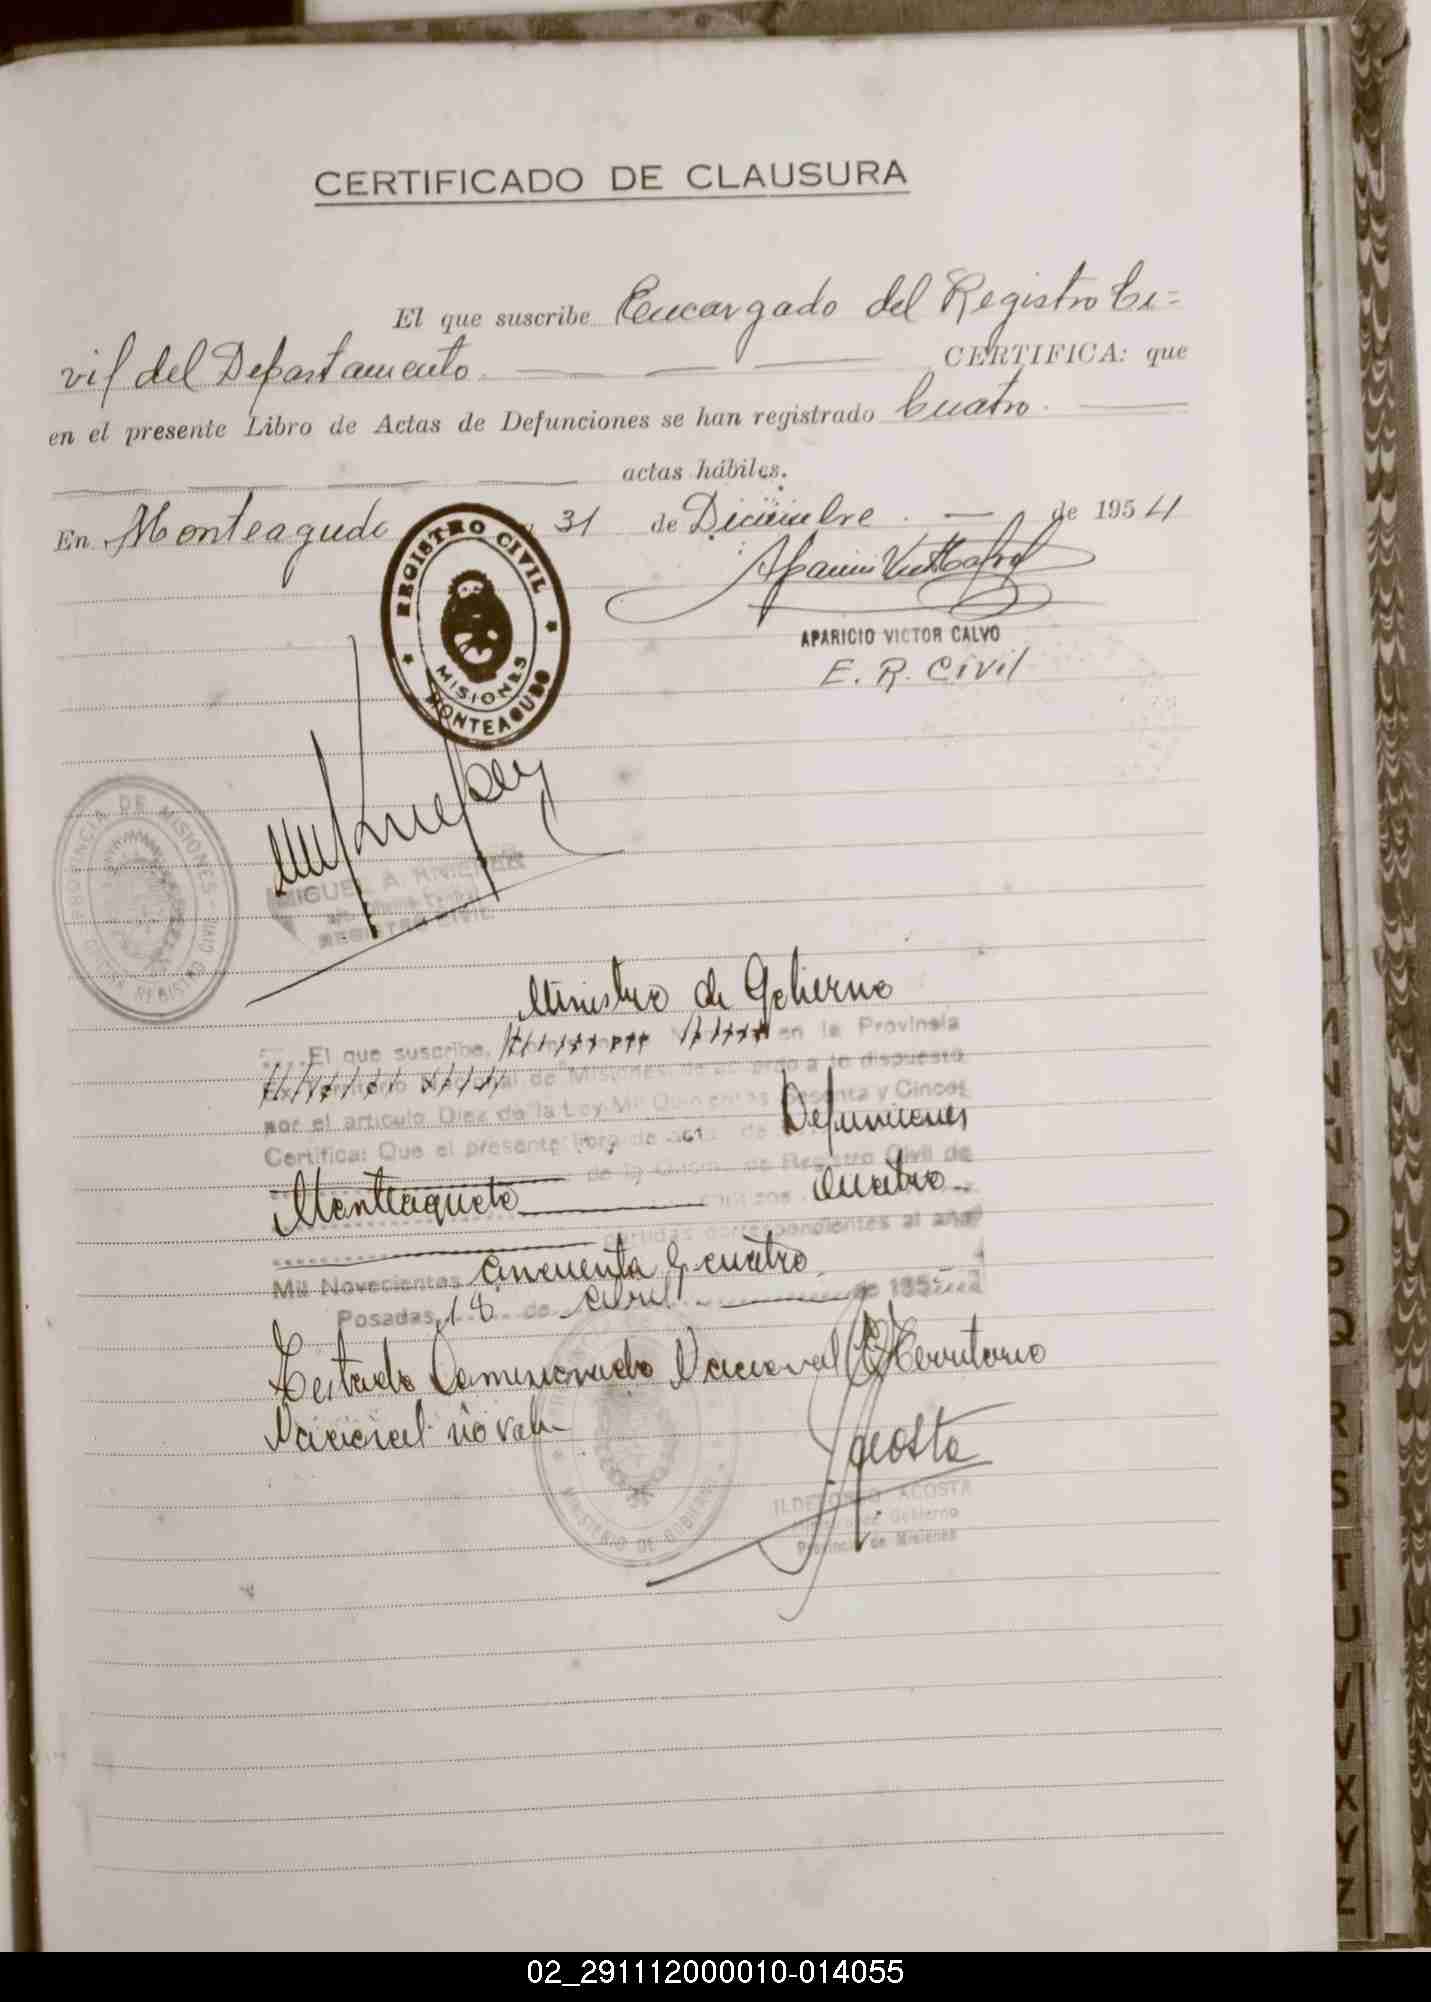 CERTIFICADO DE CLAUSURA
El que suscribe Encargado del Registro Ci=
vil del Departamento CERTIFICA: que
en el presente Libro de Actas de Defunciones se han registrado Cuatro.
actas hábiles.
En Monteagudo 31 de Diciembre de 1954
REGISTRO CIVIL
MISIONES
MONTEAGUDO
APARICIO VICTOR CALVO
E. R. Civil
PROVINCIA DE MISIONES
REGISTRO CIVIL
MIGUEL A
REGISTRO CIVIL
Ministro de Gobierno
El que suscribe, en la Provincia
Nacional de Misiones de acuerdo a lo dispuesto
por el artículo Diez de la Ley Mil Quinientos Sesenta y Cinco:
Certifica: Que el presente libro de actas de Defunciones
de la Oficina de Registro Civil de
Monteagudo cuatro
partidas correspondientes al año
Mil Novecientos cincuenta y cuatro
Posadas, 18 de abril de 195
Testado Comisionado Nacional Territorio
Nacional no vale
Acosta
MINISTERIO DE GOBIERNO
ILDEFONSO ACOSTA
Ministro de Gobierno
Provincia de Misiones
N
O
P
Q
R
S
T
U
V
X
Y
Z
02_291112000010-014055